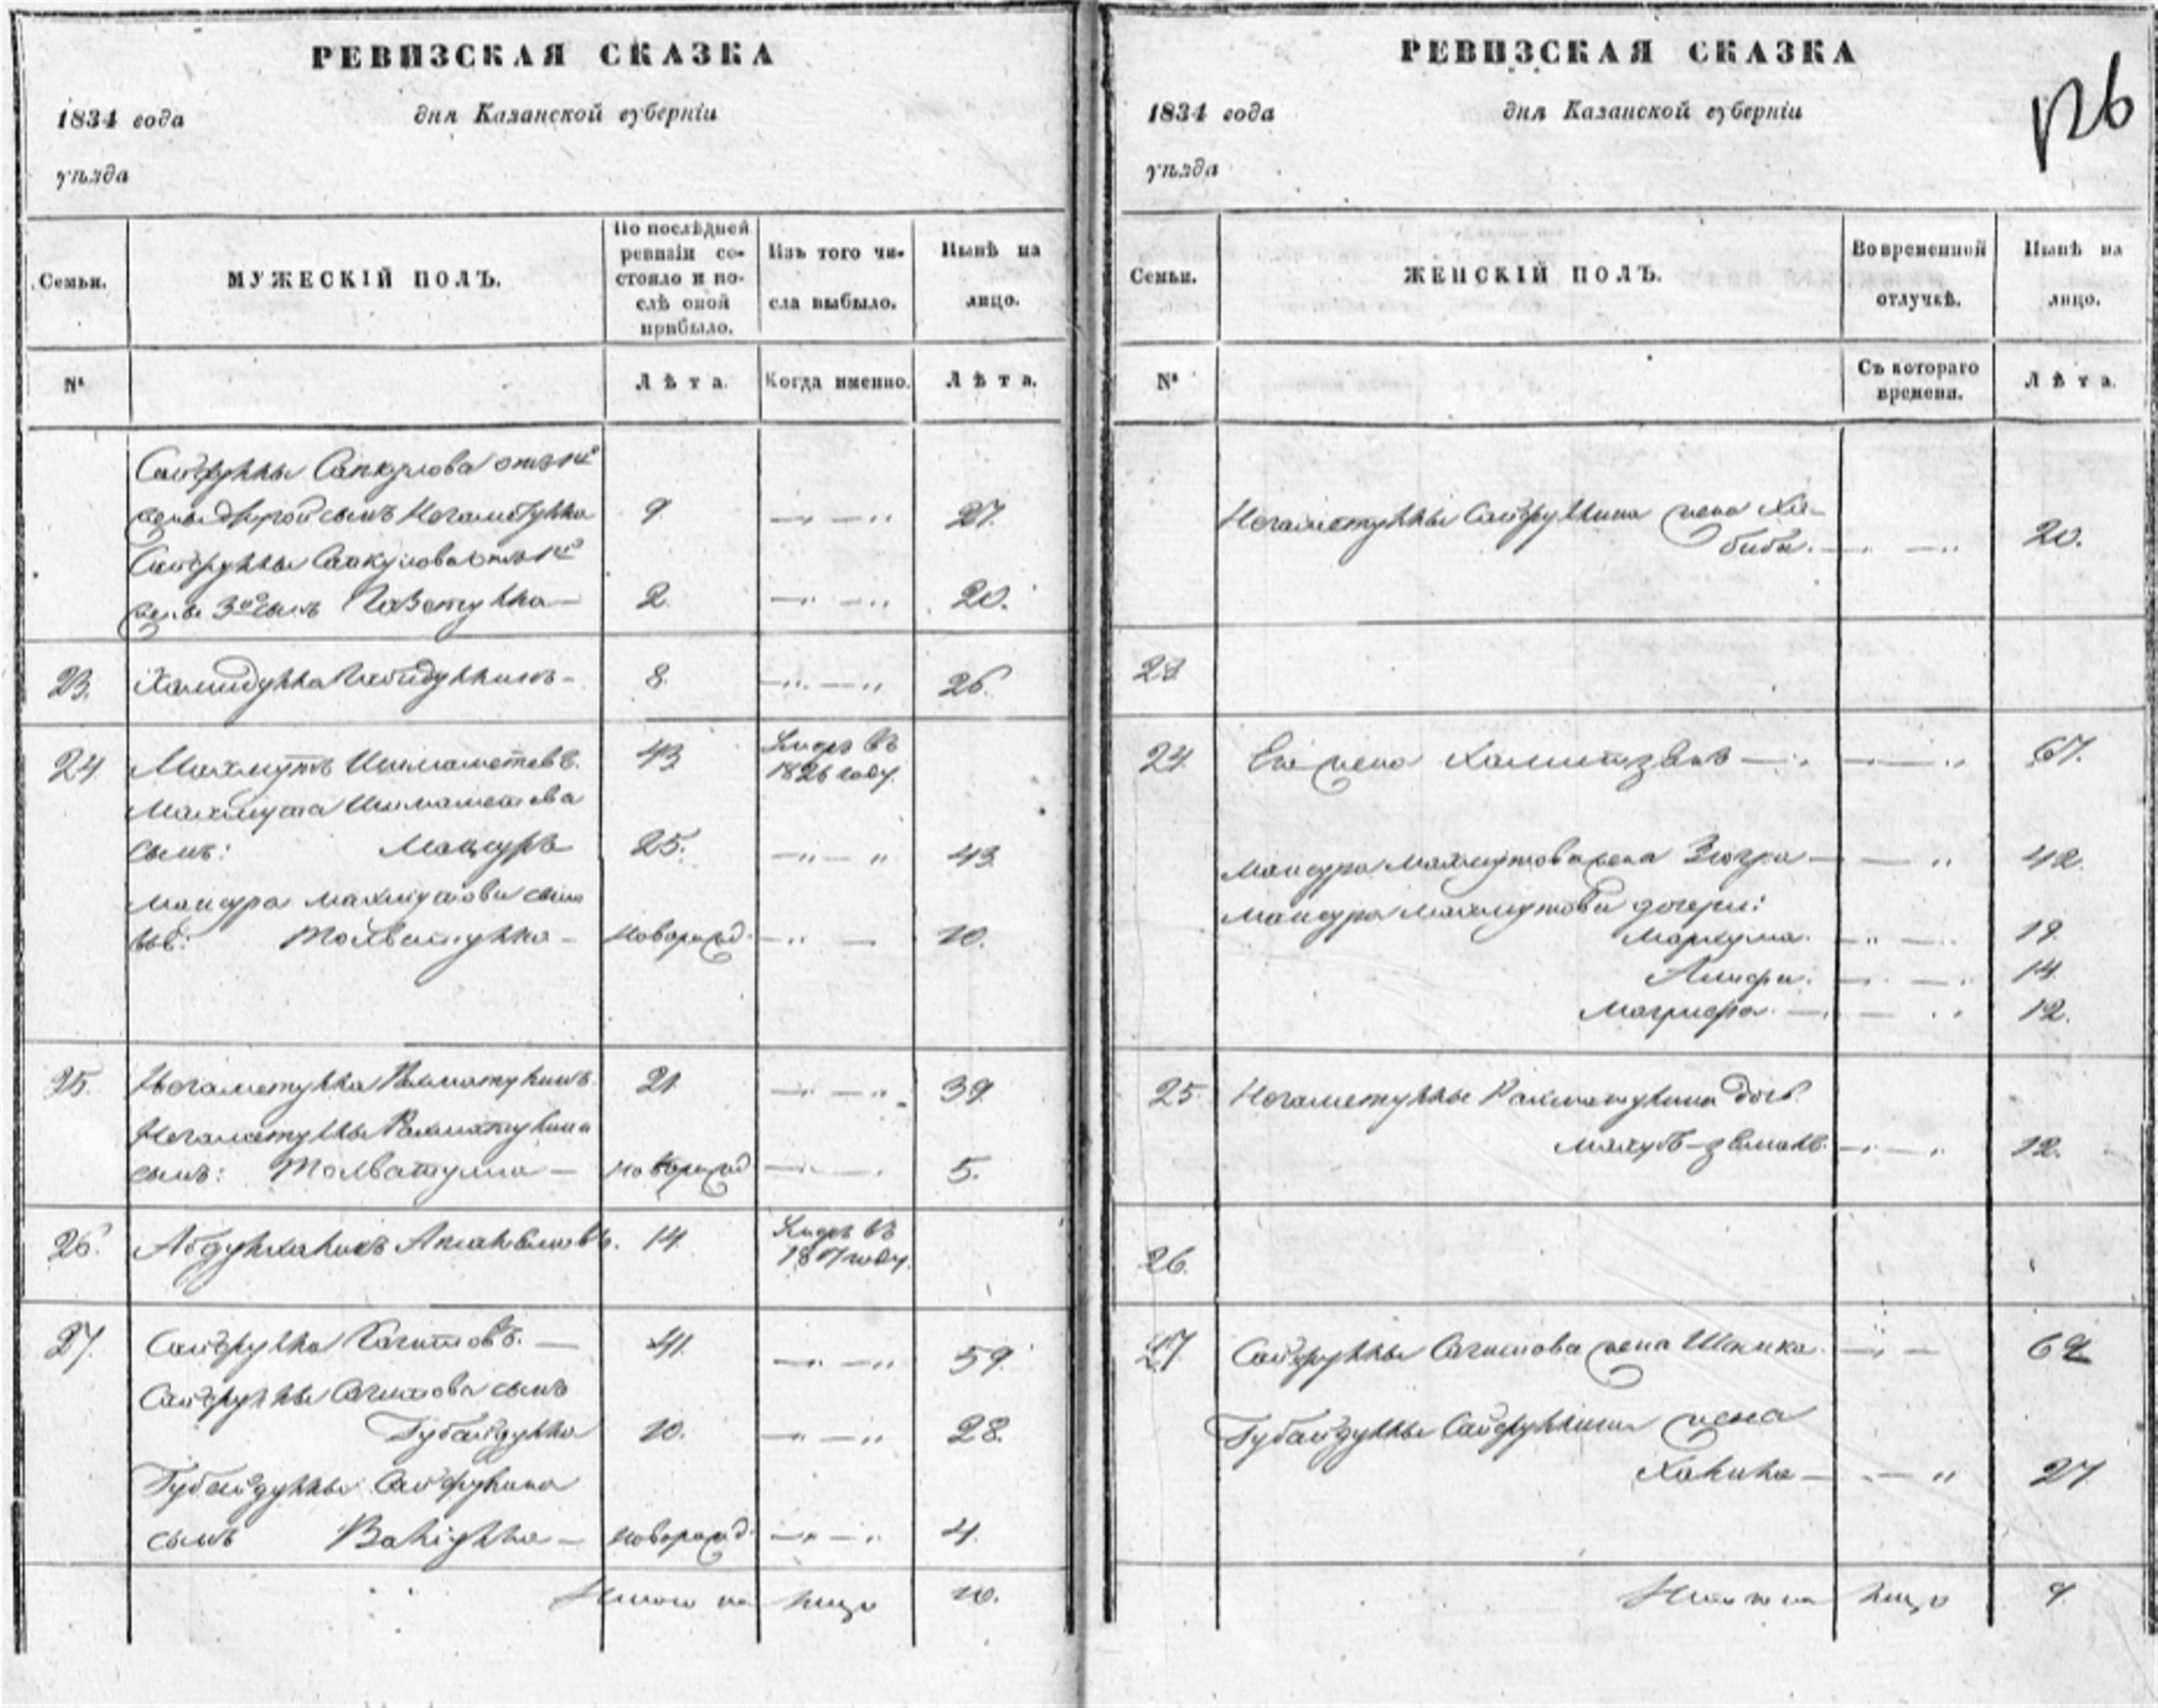 РЕВИЗСКАЯ СКАЗКА
1834 года дня Казанской губерніи
уѣзда
Семьи.
МУЖЕСКІЙ ПОЛЪ.
По послѣдней
ревизіи со-
стояло и по-
слѣ оной
прибыло.
Изъ того чи-
сла выбыло.
Нынѣ на
лицо.
№
Лѣта.
Когда именно.
Лѣта.
Сайфуллы Сапкулова отъ 1й
жены другой сынъ Негаметулла 9. 27.
Сайфуллы Сапкулова отъ 1й
жены 3й сынъ 2. 20.
23. Хамидулла Габидуллинъ 8. 26.
24 Махмутъ Ишмаметевъ. 43 Умеръ въ
1826 году.
Махмута Ишмаметева
сынъ: Мансуръ 25. 43.
Мансура Махмутова сыно
вья: Толватулла новорожд. 10.
25. Негаметулла Рахматулинъ 21. 39.
Негаметуллы Рахматулина
сынъ: новорожд 5.
26. 14. Умеръ въ
году.
27. Сайфулла Сагитовъ. 41. 59.
Сайфуллы Сагитова сынъ
Губайдулла 10. 28.
Губайдуллы Сайфулина
сынъ Валіулла новорожд 4.
Итого на лицо 10.
РЕВИЗСКАЯ СКАЗКА
1834 года дня Казанской губерніи
уѣзда
126
Семьи.
ЖЕНСКІЙ ПОЛЪ.
Во временной
отлучкѣ.
Нынѣ на
лицо.
№
Съ котораго
времени.
Лѣта.
Негаметуллы Сайфуллина жена Ха-
биба. 20.
23
24. Его жена 67.
Мансура Махмутова жена Зюгра 42.
Мансура Махмутова дочери:
Мархума. 19.
14.
Магруфа. 12.
25. Негаметуллы Рахматулина дочь.
12.
26.
27. Сайфуллы Сагитова жена 62
Губайдуллы Сайфуллина жена
Халила 27.
Итого на лицо 9.